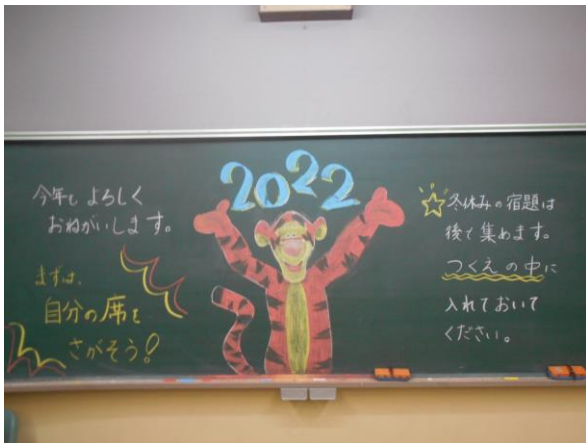 2022
今年も よろしく
おねがいします。
まずは、
自分の席を
さがそう!
冬休みの宿題は
後で集めます。
つくえの中に
入れておいて
ください。